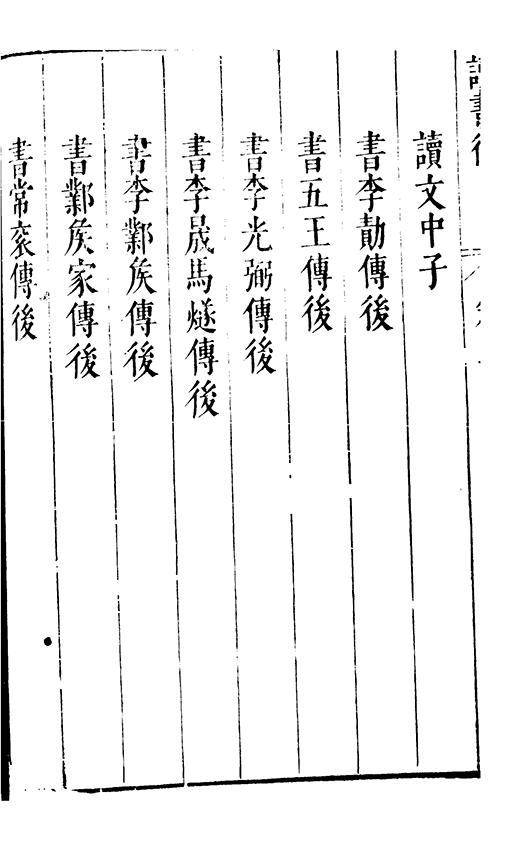 讀書後
讀文中子
書李勣傳後
書五王傳後
書李光弼傳後
書李晟馬燧傳後
書李鄴矦傳後
書鄴矦家傳後
書常袞傳後